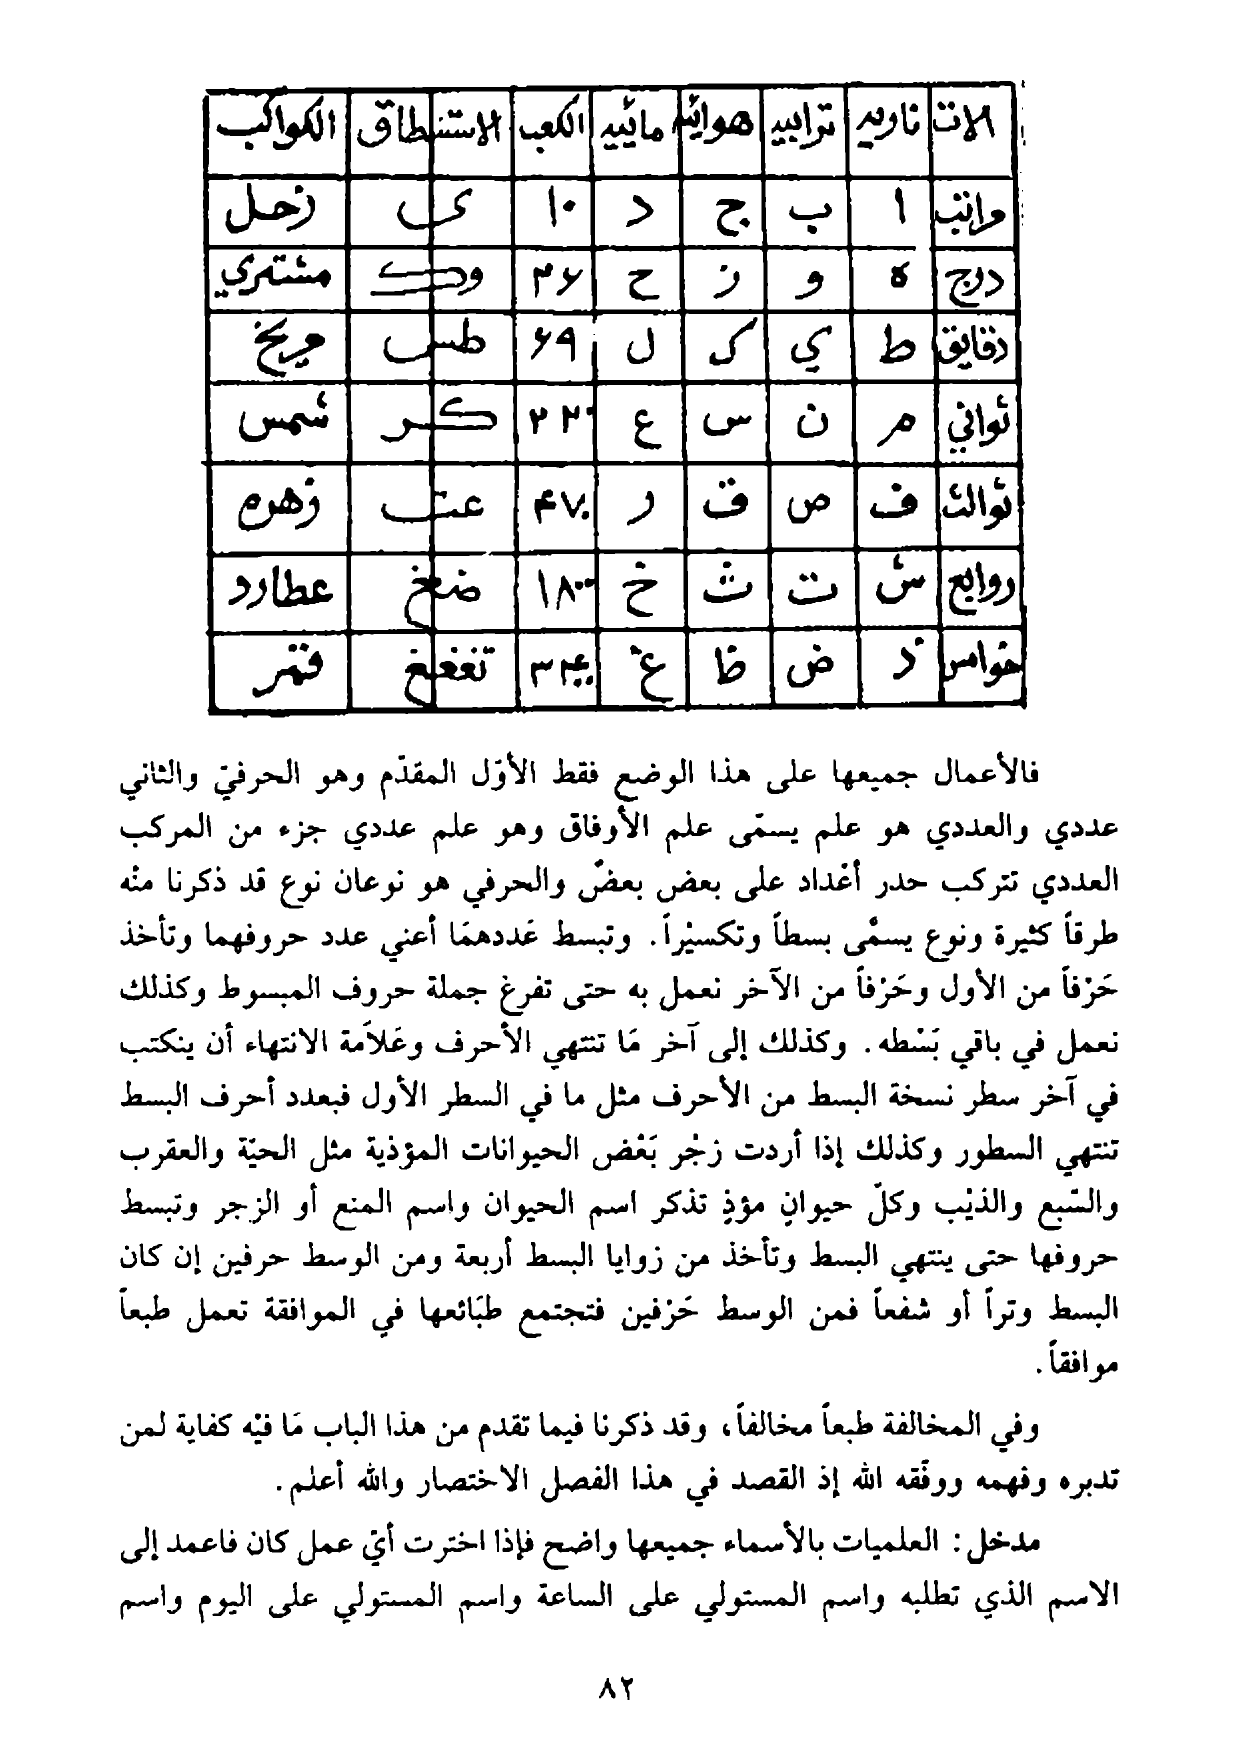 الات ناريه ترابيه هوائيه مائيه الكعب الاستنطاق الكواكب
مراتب ا ب ج د ١٠ ى زحل
درج ه و ز ح ٢۶ وك مشتري
دقايق ط ي ك ل ۶٩ طس مريخ
ثواني م ن س ع ٢٢٠ كر شمس
ثوالث ف ص ق ر ۴٧٠ عت زهره
روابع ش ت ث خ ١٨٠٠ ضغ عطارد
خوامس ذ ض ظ غ ٣۴٠٠ تغغغ قمر
فالأعمال جميعها على هذا الوضع فقط الأوّل المقدّم وهو الحرفيّ والثاني
عددي والعددي هو علم يسمّى علم الأوفاق وهو علم عددي جزء من المركب
العددي تتركب حدر أعْداد على بعض بعضٌ والحرفي هو نوعان نوع قد ذكرنا منْه
طرقاً كثيرة ونوع يسمّْى بسطاً وتكسيْراً. وتبسط عَددهمَا أعني عدد حروفهما وتأخذ
حَرْفاً من الأول وحَرْفاً من الآخر نعمل به حتى تفرغ جملة حروف المبسوط وكذلك
نعمل في باقي بَسْطه. وكذلك إلى آخر مَا تنتهي الأحرف وعَلاَمة الانتهاء أن ينكتب
في آخر سطر نسخة البسط من الأحرف مثل ما في السطر الأول فبعدد أحرف البسط
تنتهي السطور وكذلك إذا أردت زجْر بَعْض الحيوانات المؤذية مثل الحيّة والعقرب
والسّبع والذيْب وكلّ حيوانٍ مؤذٍ تذكر اسم الحيوان واسم المنع أو الزجر وتبسط
حروفها حتى ينتهي البسط وتأخذ من زوايا البسط أربعة ومن الوسط حرفين إن كان
البسط وتراً أو شفعاً فمن الوسط حَرْفين فتجتمع طبَائعها في الموافقة تعمل طبعاً
موافقاً.
وفي المخالفة طبعاً مخالفاً، وقد ذكرنا فيما تقدم من هذا الباب مَا فيْه كفاية لمن
تدبره وفهمه ووفّقه الله إذ القصد في هذا الفصل الاختصار والله أعلم.
مدخل: العلميات بالأسماء جميعها واضح فإذا اخترت أيّ عمل كان فاعمد إلى
الاسم الذي تطلبه واسم المستولي على الساعة واسم المستولي على اليوم واسم
٨٢